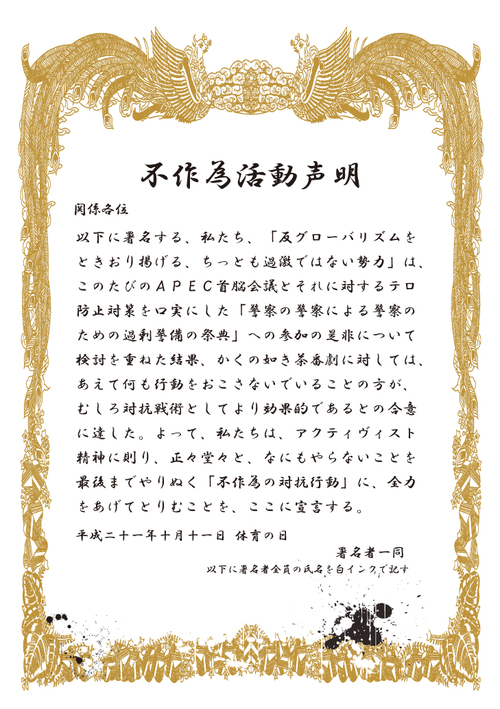 不作為活動声明
関係各位
以下に署名する、私たち、「反グローバリズムを
ときおり掲げる、ちっとも過激ではない勢力」は、
このたびのAPEC首脳会議とそれに対するテロ
防止対策を口実にした「警察の警察による警察の
ための過剰警備の祭典」への参加の是非について
検討を重ねた結果、かくの如き茶番劇に対しては、
あえて何も行動をおこさないでいることの方が、
むしろ対抗戦術としてより効果的であるとの合意
に達した。よって、私たちは、アクティヴィスト
精神に則り、正々堂々と、なにもやらないことを
最後までやりぬく「不作為の対抗行動」に、全力
をあげてとりむことを、ここに宣言する。
平成二十一年十月十一日 体育の日
署名者一同
以下に署名者全員の氏名を白インクで記す